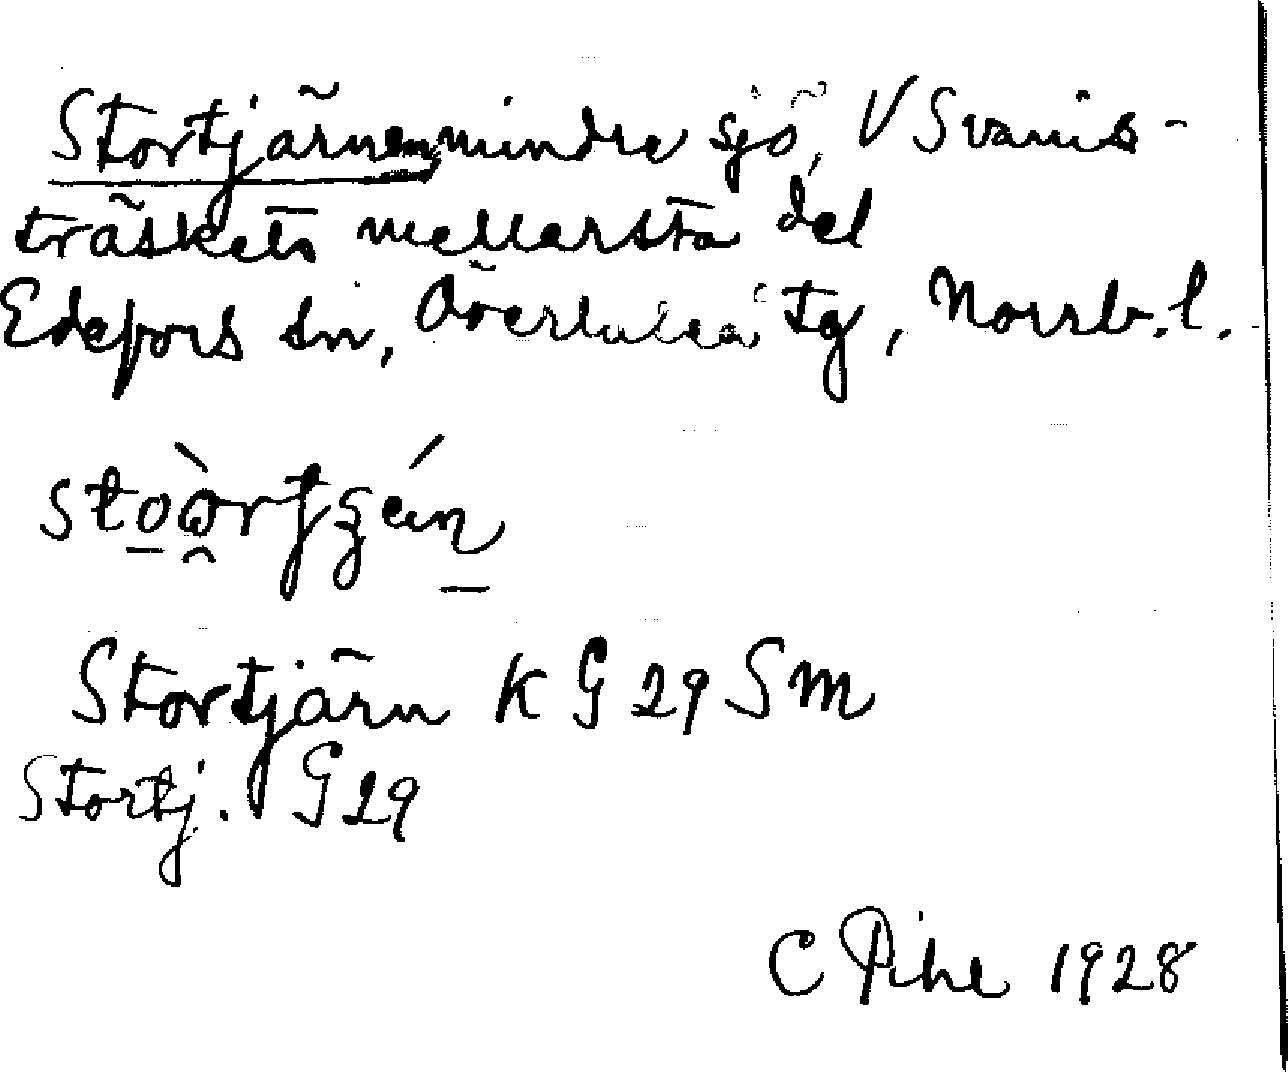 Stortjärnen, mindre sjö, V Svanis-
träskets mellersta del
Edefors sn, Överluleå tg, Norrb. l.
Stortjärn K G 29 S m
Stortj. G 29
C Pihl 1928